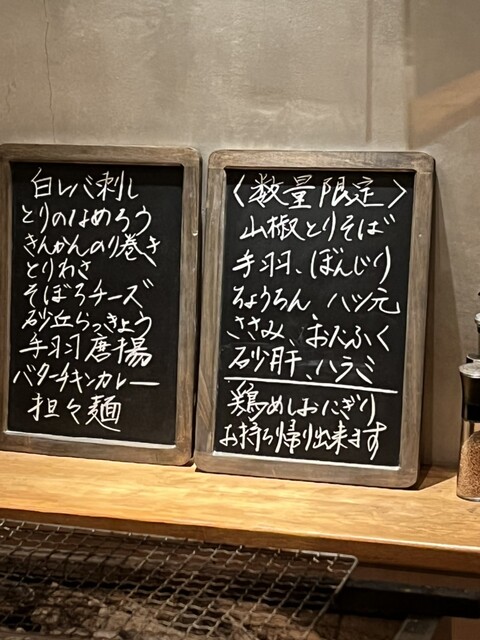 白レバ刺し
とりのはめろう
きんかんのり巻き
とりわさ
そぼろチーズ
砂丘らっきょう
手羽唐揚
バターチキンカレー
担々麺
〈数量限定〉
山椒とりそば
手羽、ぼんじり
ちょうちん、ハツ元
ささみ、おたふく
砂肝、ハラミ
鶏めしおにぎり
お持ち帰り出来ます